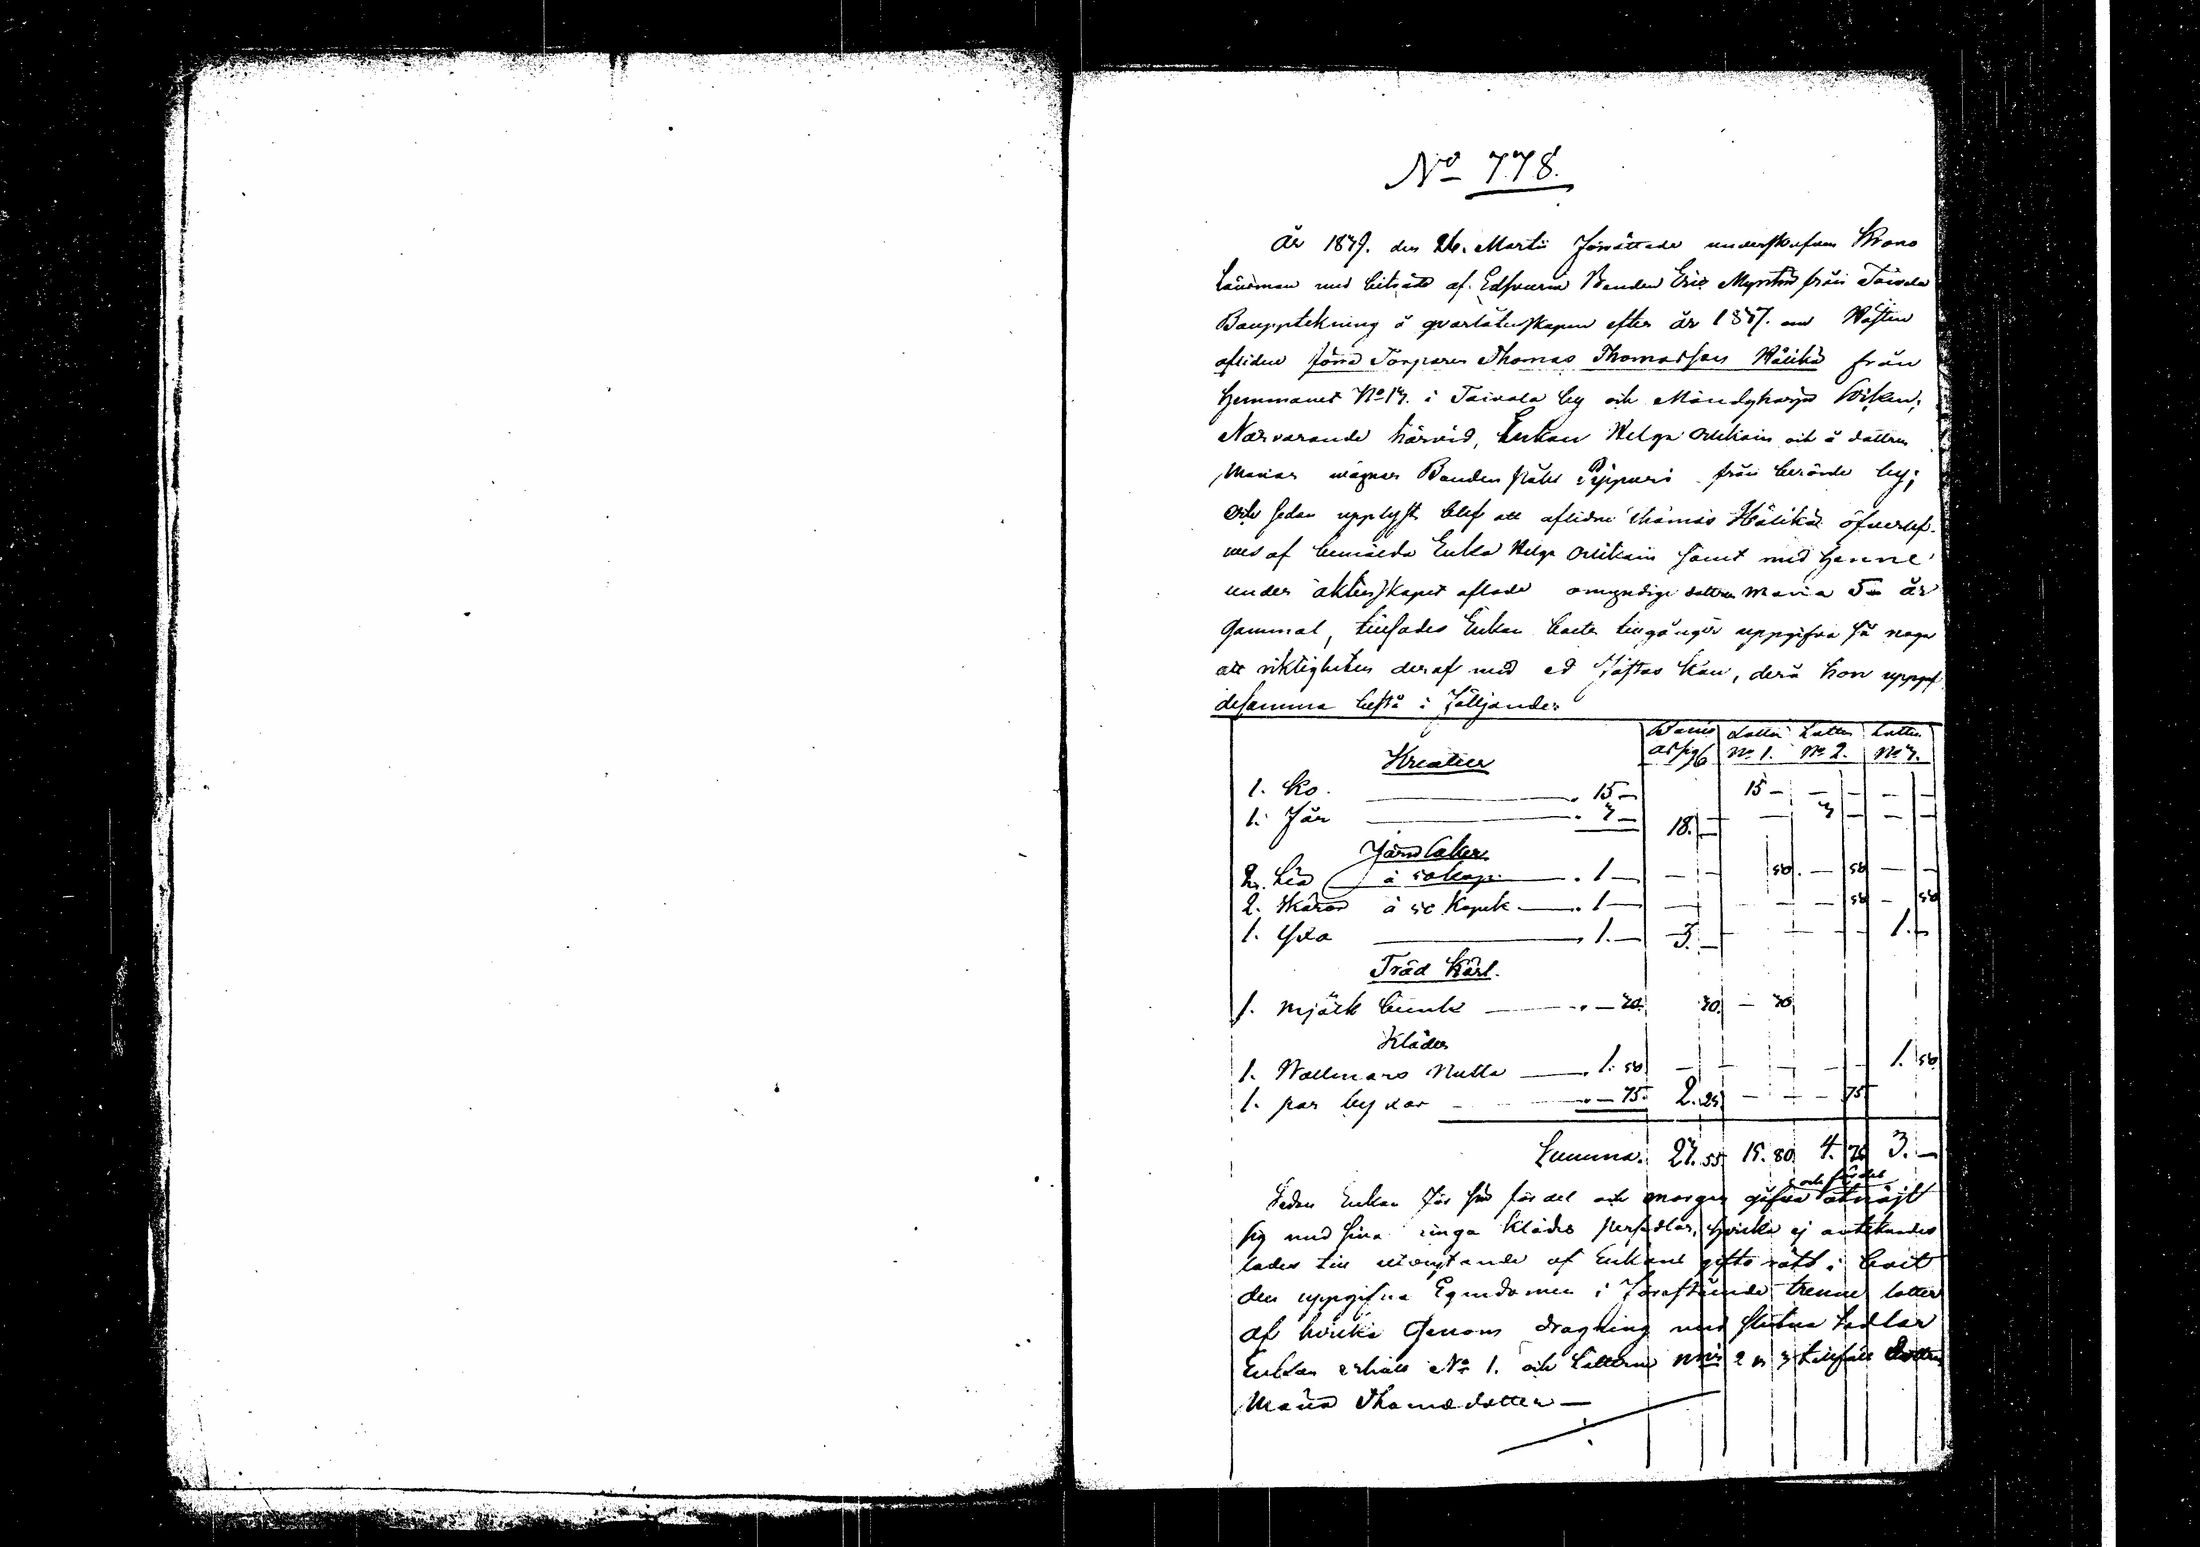 No 778.
År 1837. den 26. Martii förrättade underskrefven Krono
Länsman med biträde af Edsvurne Bonden Eric från Taivala
Bouppteckning å qvarlåtenskapen efter år 1837. om Hösten
aflidne förra Torparen Thomas Thomasson Hälikä från
hemmanet No 17. i Taivala by och Socken;
Närvarande härvid, Enkan Helga och å dottren
Marias vägnar Bonden Påhl Pippuri från berörde by;
och sedan upplyst blef att aflidne Thomas Hälikä öfverlef-
ves af bemälda Enka Helga samt med henne
under äktenskapet aflade omyndige dottren Maria 5 år
Gammal, tillsades Enkan boets tillgångar uppgifva så noga
att riktigheten deraf med ed fästas kan, derå hon uppgaf
desamma bestå i följande:
Lotten Lotten Lotten
No 1. No 2. No 3.
Kreatur
1. Ko. 15 — 15 — — — — —
1. Får 3 — 18. — — 3 — — —
Järnsaker
2. Lia à 50 kop. 1 — — — 50. — 50 — —
2. Skäror à 50 Kopek 1 — — — — 50 — 50
1. Yxa 1. — 3. — — — — 1. —
Träd Kärl.
1. Mjölk bunk — 30. 30. — 30
Kläder
1. Wallmars 1. 50 — — — — — 1. 50
1. par byxor — 75. 2. 25 — — — 75
Summa. 23. 55 15. 80. 4. 75 3. —
och fördel
Sedan Enkan för sin fördel och morgon gåfva åtnöjt
sig med sina ringa kläds persedlar, hvilka ej antecknades
lades till utrönande af Enkans gifto rätt i boet
den uppgifna Egendomen i förestående trenne lotter
af hvilka Genom dragning med slutna Sedlar
Enkan erhöll No 1. och Lotterne No 2 o 3 tillföll dottren
Maria Thomædotter —